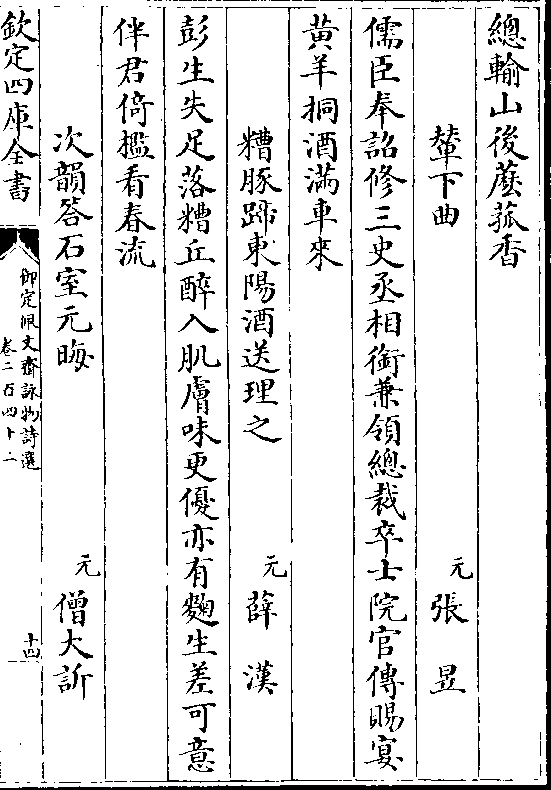 總輸山後蘑菰香
輦下曲
元 張昱
儒臣奉詔修三史丞相銜兼領總裁卒士院官傳賜宴
黄羊挏酒滿車來
糟豚蹄東陽酒送理之
元 薛漢
彭生失足落糟丘醉入肌膚味更優亦有麴生差可意
伴君倚檻看春流
次韻答石室元晦
元 僧大訢
欽定四庫全書
御定佩文齋詠物詩選
卷二百四十二
十四